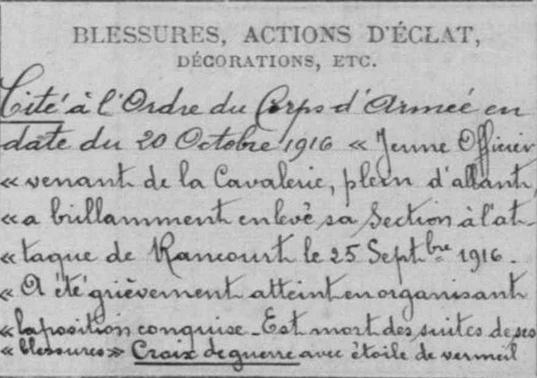 BLESSURES, ACTIONS D'ÉCLAT,
DÉCORATIONS, ETC.
Cité à l'Ordre du Corps d'Armée en
date du 20 Octobre 1916 « Jeune Officier
« venant de la Cavalerie, plein d'allant,
« a brillamment enlevé sa Section à l'at-
« taque de Rancourt le 25 Septbre 1916.
« A été grièvement atteint en organisant
« la position conquise - Est mort des suites de ses
« blessures » Croix de guerre avec étoile de vermeil